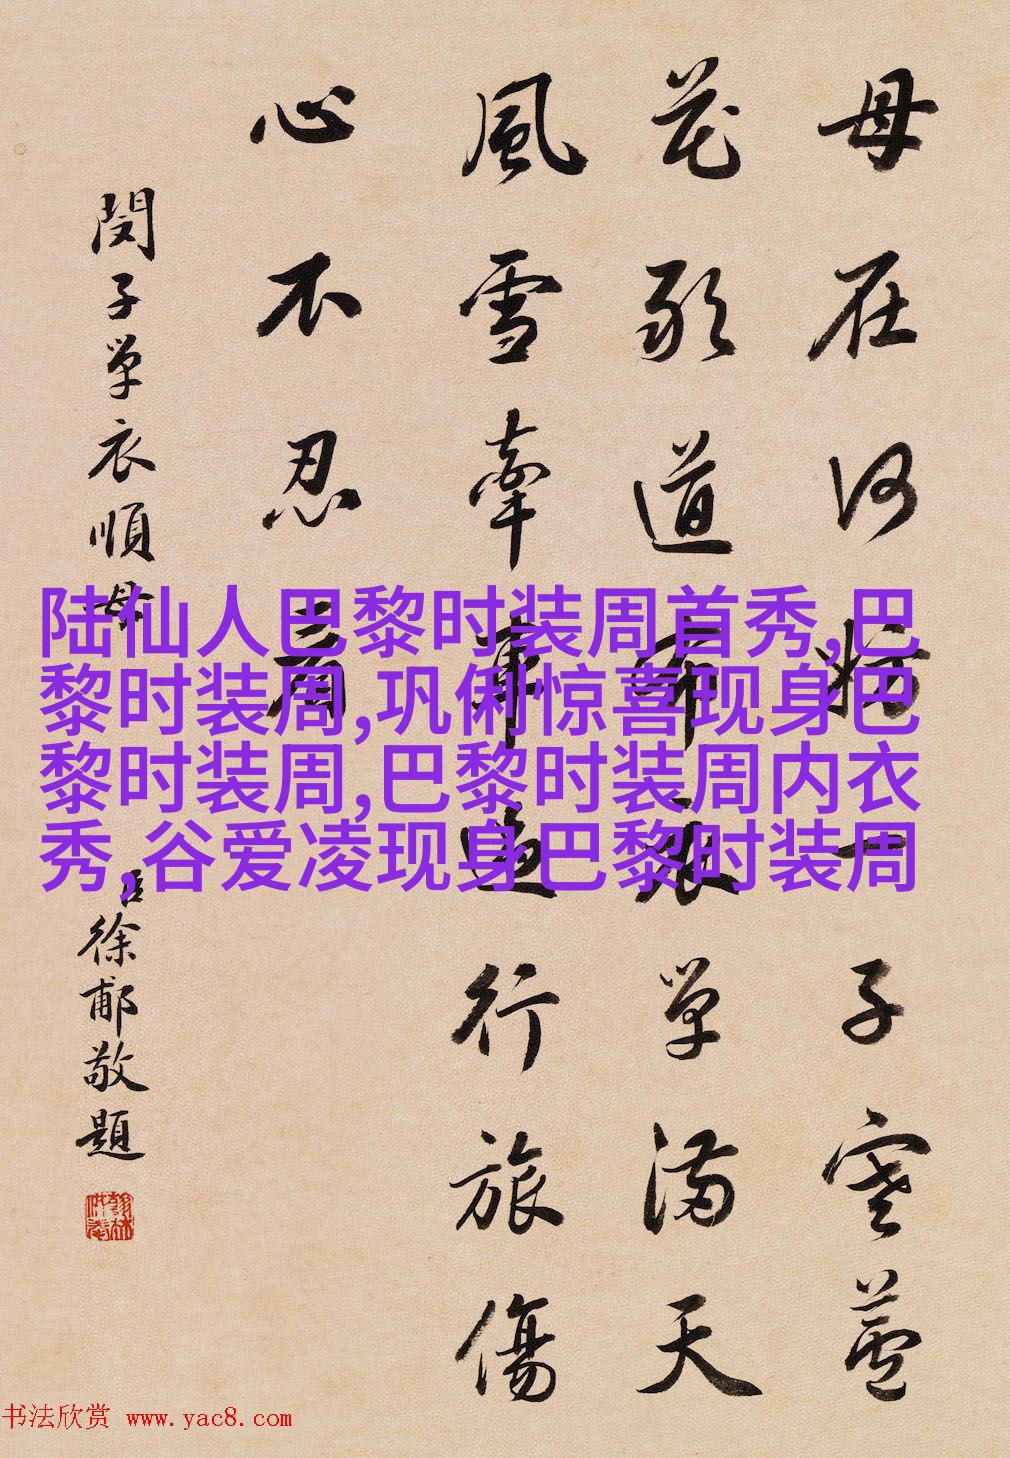 母在何妨一子寒蘆
花道單滿天
風雪牽車過行旅傷
心不忍看
閔子單衣順母
徐郙敬題
陆仙人巴黎时装周首秀,巴
黎时装周,巩俐惊喜现身巴
黎时装周,巴黎时装周内衣
秀,谷爱凌现身巴黎时装周
书法欣赏 www.yac8.com